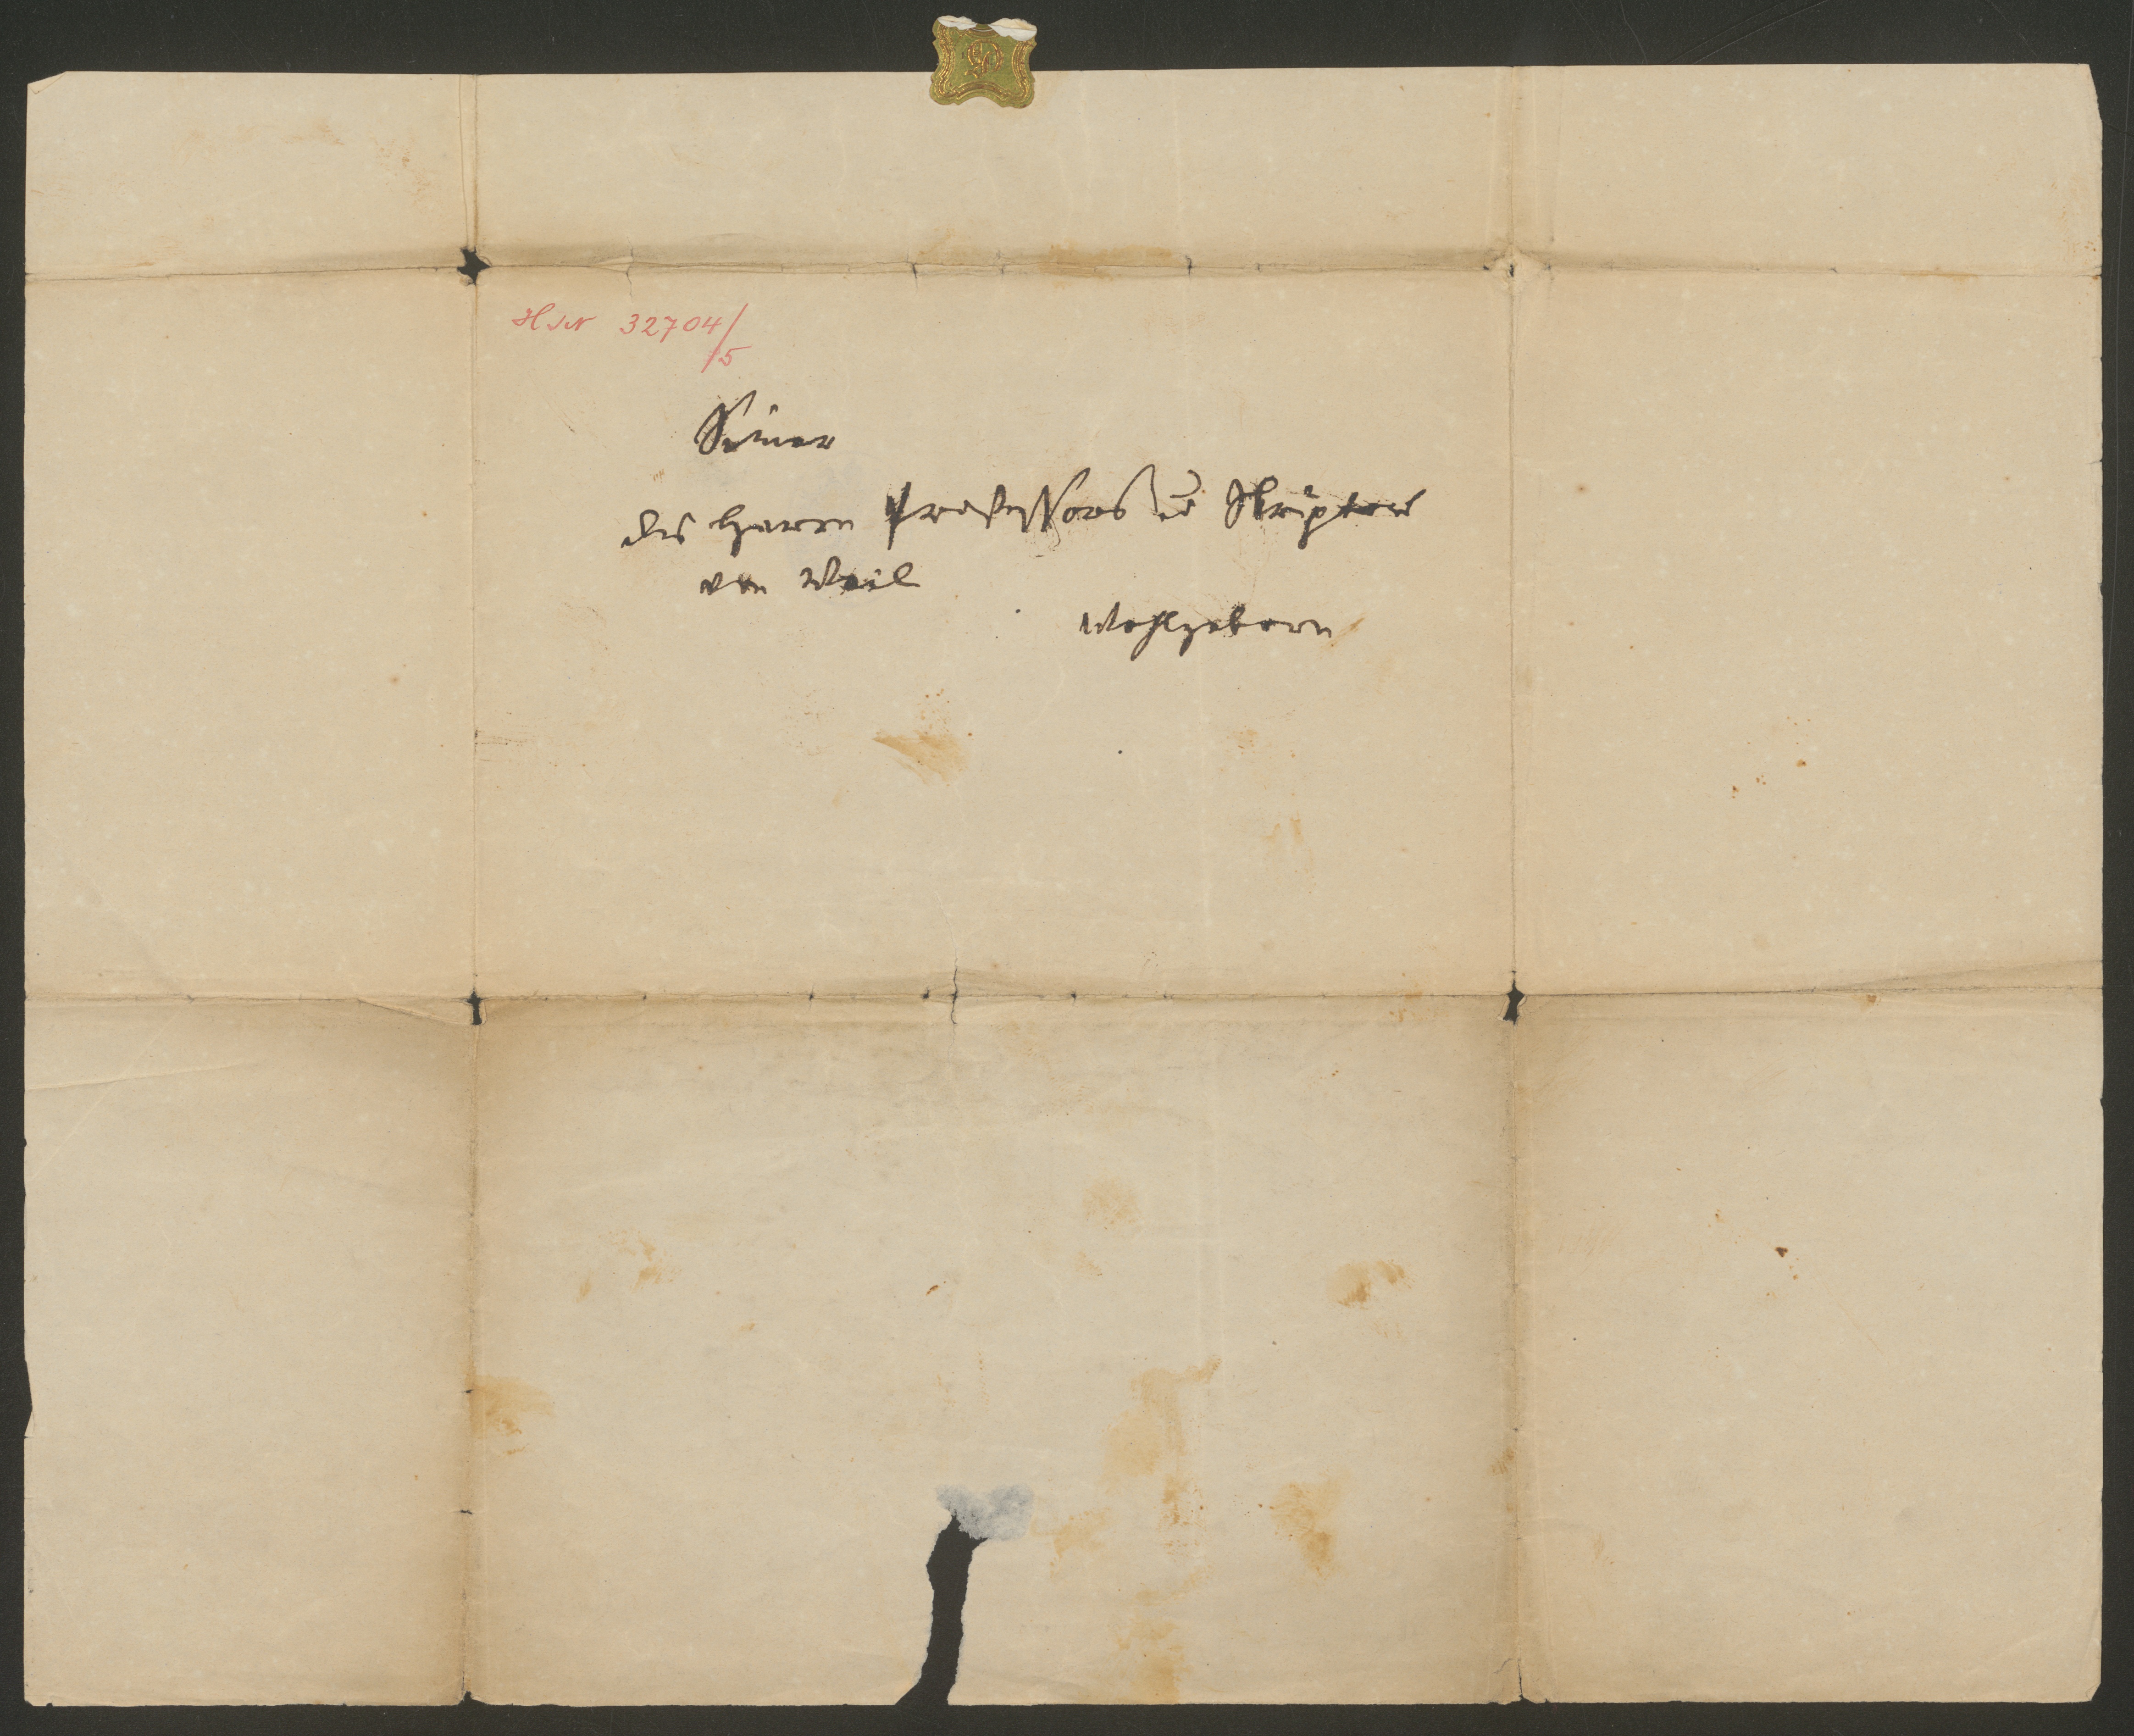 H.I.N. 32704/
/5
Seiner
des Herrn Professors u Skriptors
von Weil
Wohlgeborn